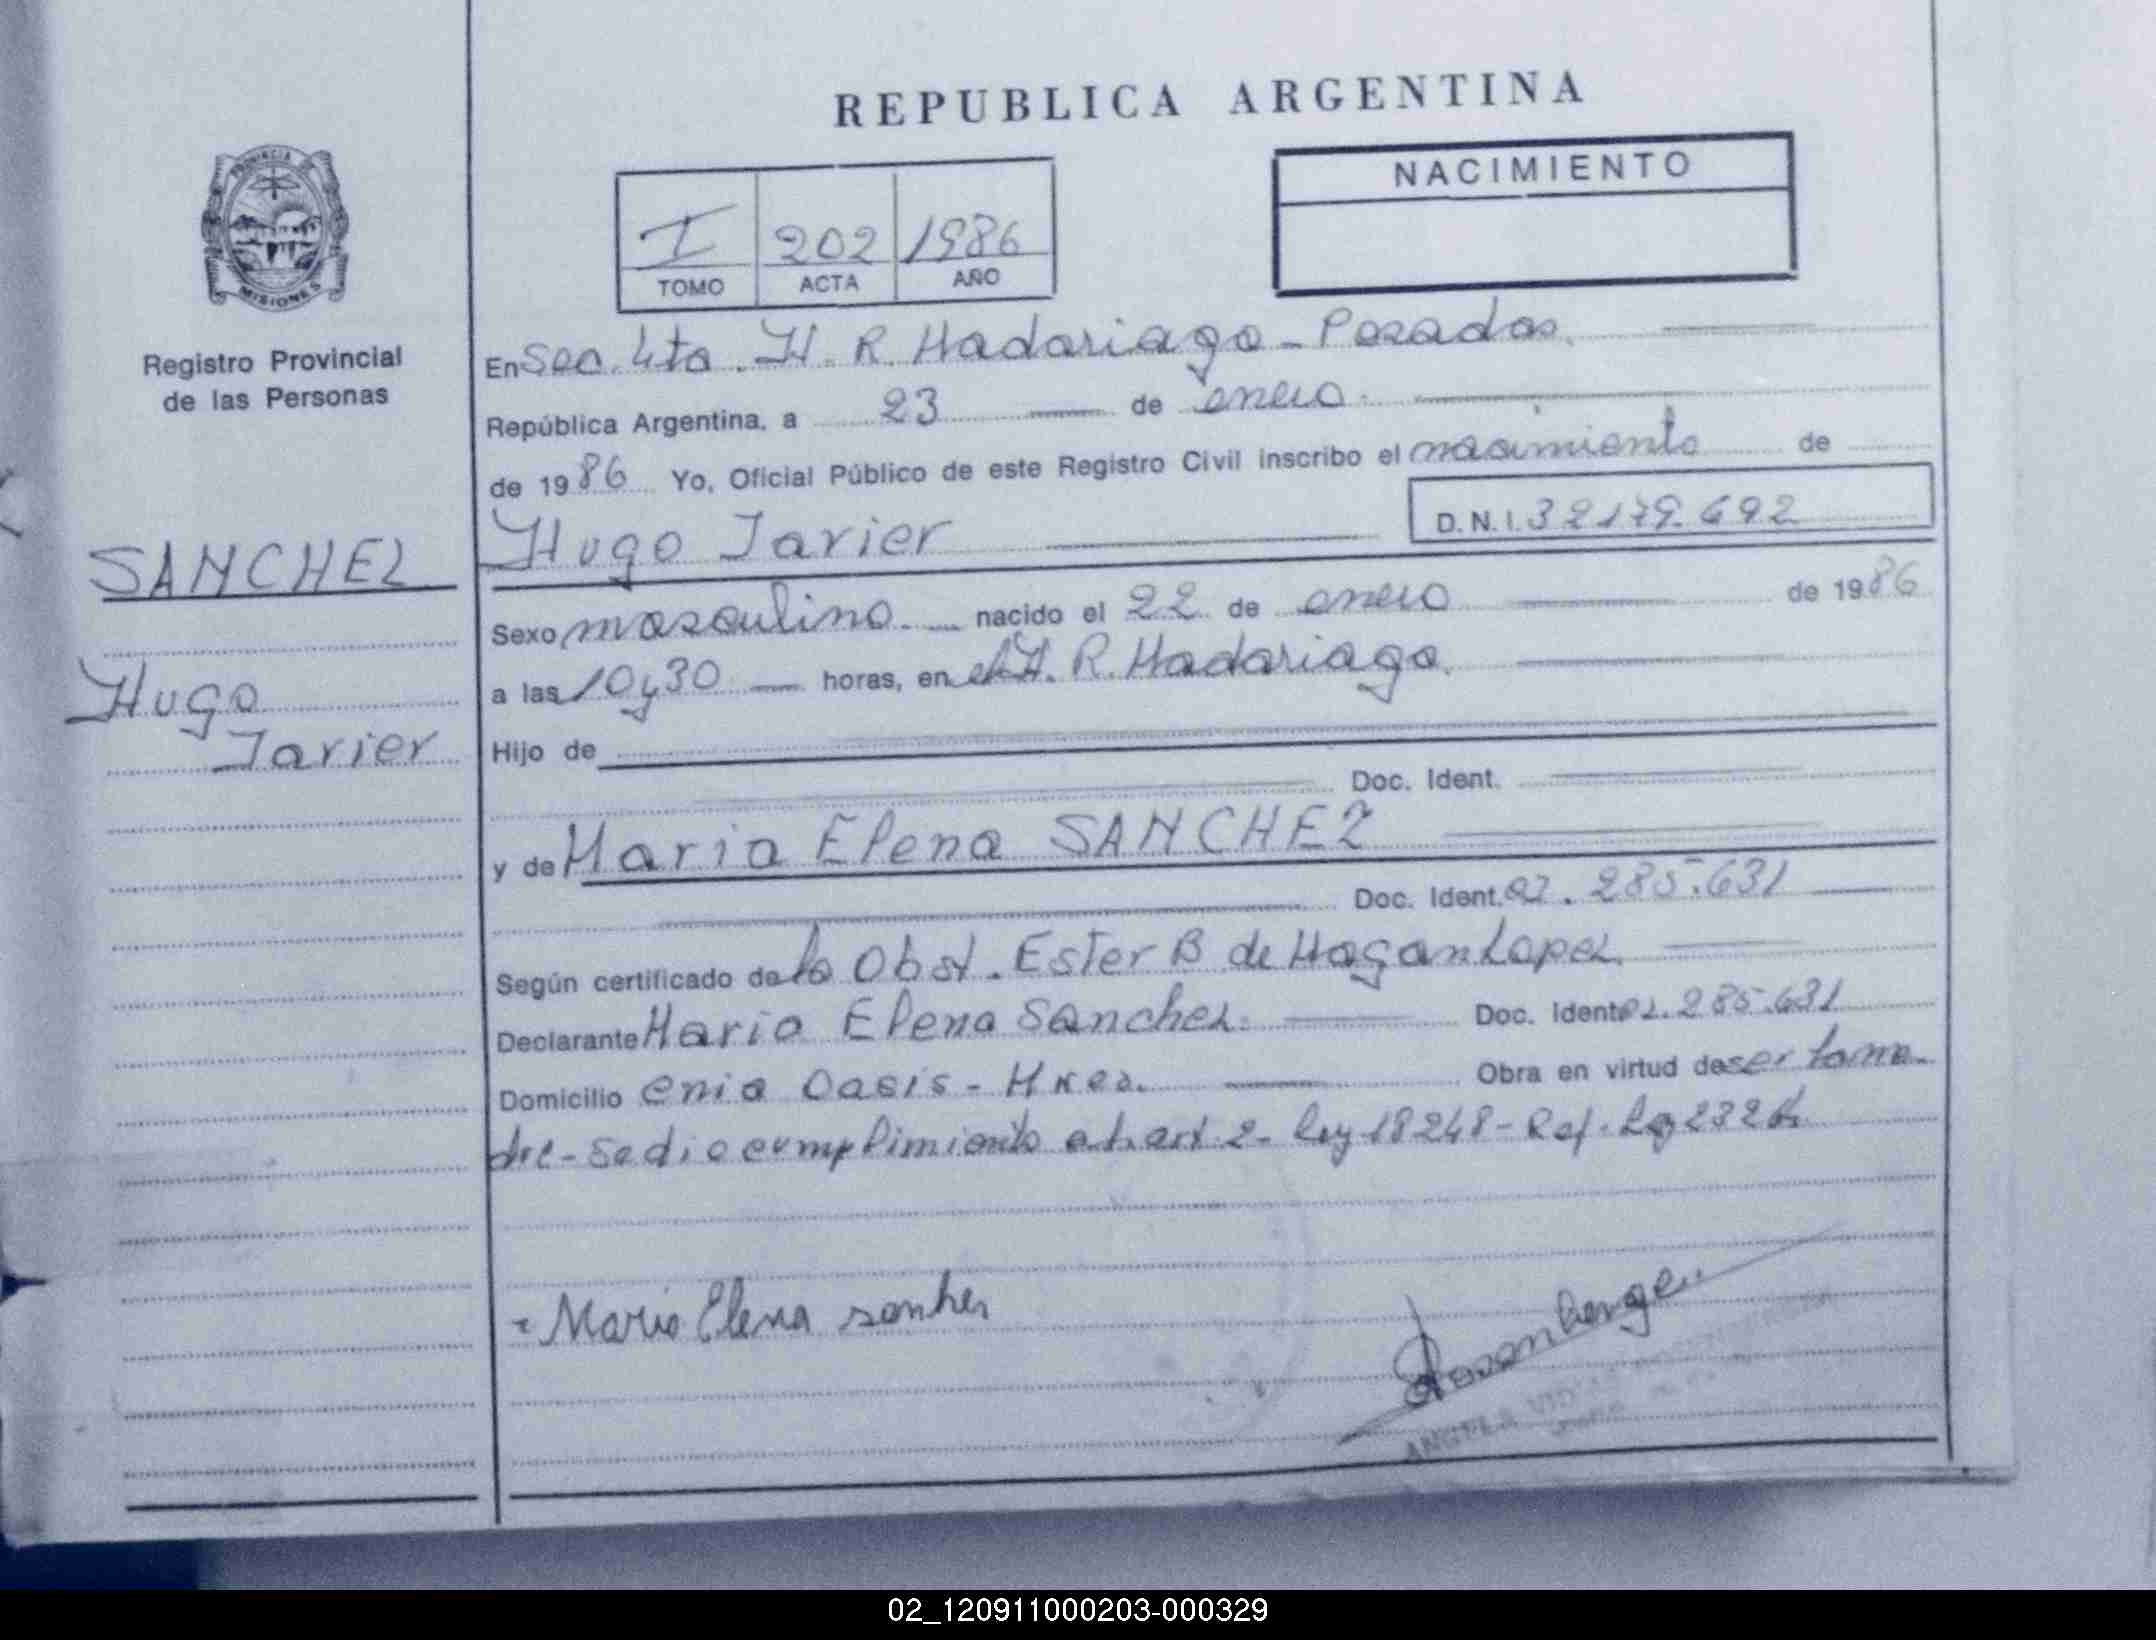 REPUBLICA ARGENTINA
PROVINCIA
MISIONES
Registro Provincial
de las Personas
I 202 1986
TOMO ACTA AÑO
NACIMIENTO
En Sec. 4ta. H. R. Madariaga - Posadas.
República Argentina, a 23 de enero.
de 1986 Yo, Oficial Público de este Registro Civil inscribo el nacimiento de
Hugo Javier D.N.I. 32179.692
SANCHEZ
Hugo
Javier
Sexo masculino. nacido el 22 de enero de 1986
a las 10y30 horas, en el H. R. Madariaga.
Hijo de
Doc. Ident.
y de Maria Elena SANCHEZ
Doc. Ident. . 285.631
Según certificado de la Obst. Ester B de Lopez.
Declarante Maria Elena Sanchez. Doc. Ident. . 285.631
Domicilio Oasis - Obra en virtud de ser la ma-
dre - Se dio cumplimiento al art 2 - Ley 18248 - Ref. Ley
Maria Elena sanhes
ANGELA
02_120911000203-000329